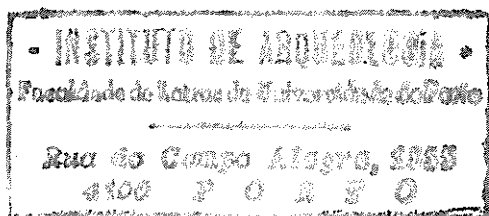 • INSTITUTO DE ARQUEOLOGIA •
Faculdade de Letras da Universidade do Porto
Rua do Campo Alegre, 1055
4100 PORTO